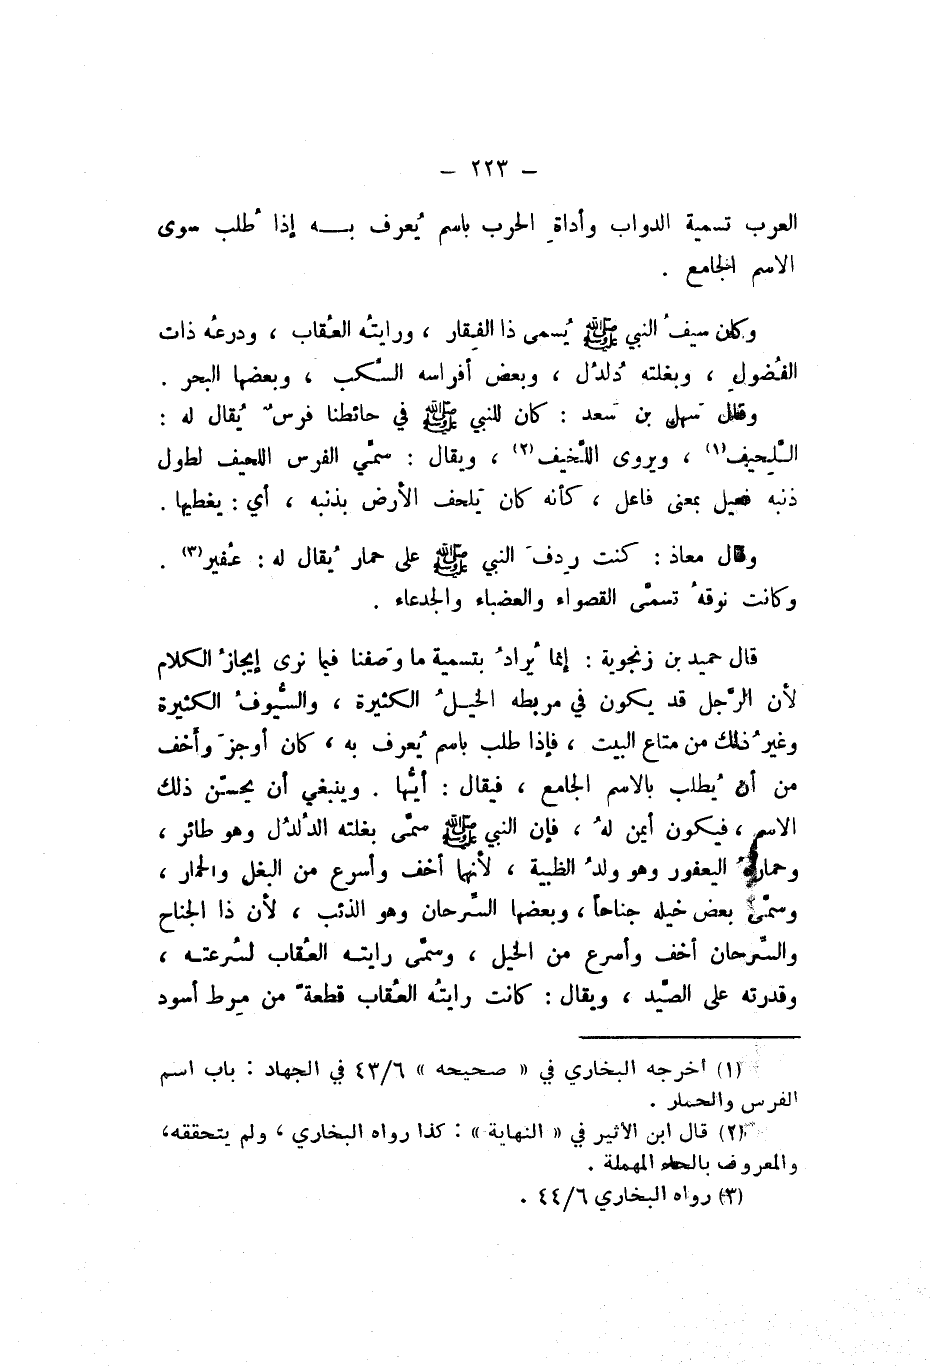 — ٢٢٣ —
العرب تسمية الدواب وأداةِ الحرب باسم يُعرف بــه إذا طُلب سوى
الاسم الجامع .
وكان سيفُ النبي ﷺ يُسمى ذا الفِقار ، ورايتُه العُقاب ، ودرعُه ذات
الفُضولِ ، وبغلته دُلدُل ، وبعض أفراسه السَّكب ، وبعضها البحر .
وقال سَهل بن سَعد : كان للنبي ﷺ في حائطنا فرسٌ يُقال له :
اللَّحِيف(١) ، ويروى اللَّخيف(٢) ، ويقال : سمِّي الفرس اللحيف لطول
ذنبه فعيل بمعنى فاعل ، كأنه كان يَلحف الأرض بذنبه ، أي : يغطيها .
وقال معاذ : كنت رِدفَ النبي ﷺ على حمار يُقال له : عُفير(٣) .
وكانت نوقهُ تسمَّى القصواء والعضباء والجدعاء .
قال حميد بن زنجوية : إنما يُرادُ بتسمية ما وَصفنا فيما نرى إيجازُ الكلام
لأن الرَّجل قد يكون في مربطه الخيلُ الكثيرة ، والسُّيوفُ الكثيرة
وغيرُ ذلك من متاع البيت ، فإذا طلب باسم يُعرف به ، كان أوجزَ وأخف
من أن يُطلب بالاسم الجامع ، فيقال : أيُّها . وينبغي أن يحسّن ذلك
الاسم ، فيكون أيمن لهُ ، فإن النبي ﷺ سمَّى بغلته الدُلدُل وهو طائر ،
وحمارهُ اليعفور وهو ولدُ الظبية ، لأنها أخف وأسرع من البغل والحمار ،
وسمَّى بعض خيله جناحاً ، وبعضها السَّرحان وهو الذئب ، لأن ذا الجناح
والسَّرحان أخف وأسرع من الخيل ، وسمَّى رايتــه العُقاب لسُرعتــه ،
وقدرته على الصَّيد ، ويقال : كانت رايتُه العُقاب قطعةً من مِرط أسود
(١) أخرجه البخاري في « صحيحه » ٤٣/٦ في الجهاد : باب اسم
الفرس والحمار .
(٢) قال ابن الأثير في « النهاية » : كذا رواه البخاري ، ولم يتحققه،
والمعروف بالحاء المهملة .
(٣) رواه البخاري ٤٤/٦ .